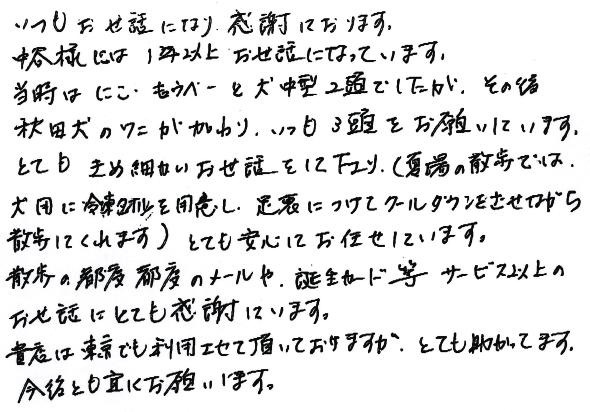 いつもお世話になり感謝しております。
中谷様には1年以上お世話になっています。
当時はにこ・もウベーと犬中型2頭でしたが、その後
秋田犬のワニが加わり、いつも3頭をお願いしています。
とてもきめ細かいお世話をして下さり、(夏場の散歩では、
犬用に冷凍タオルを用意し、足裏につけてクールダウンをさせながら
散歩してくれます)とても安心してお任せしています。
散歩の都度都度のメールや、誕生カード等サービス以上の
お世話にとても感謝しています。
貴店は東京でも利用させて頂いておりますが、とても助かってます。
今後とも宜しくお願いします。